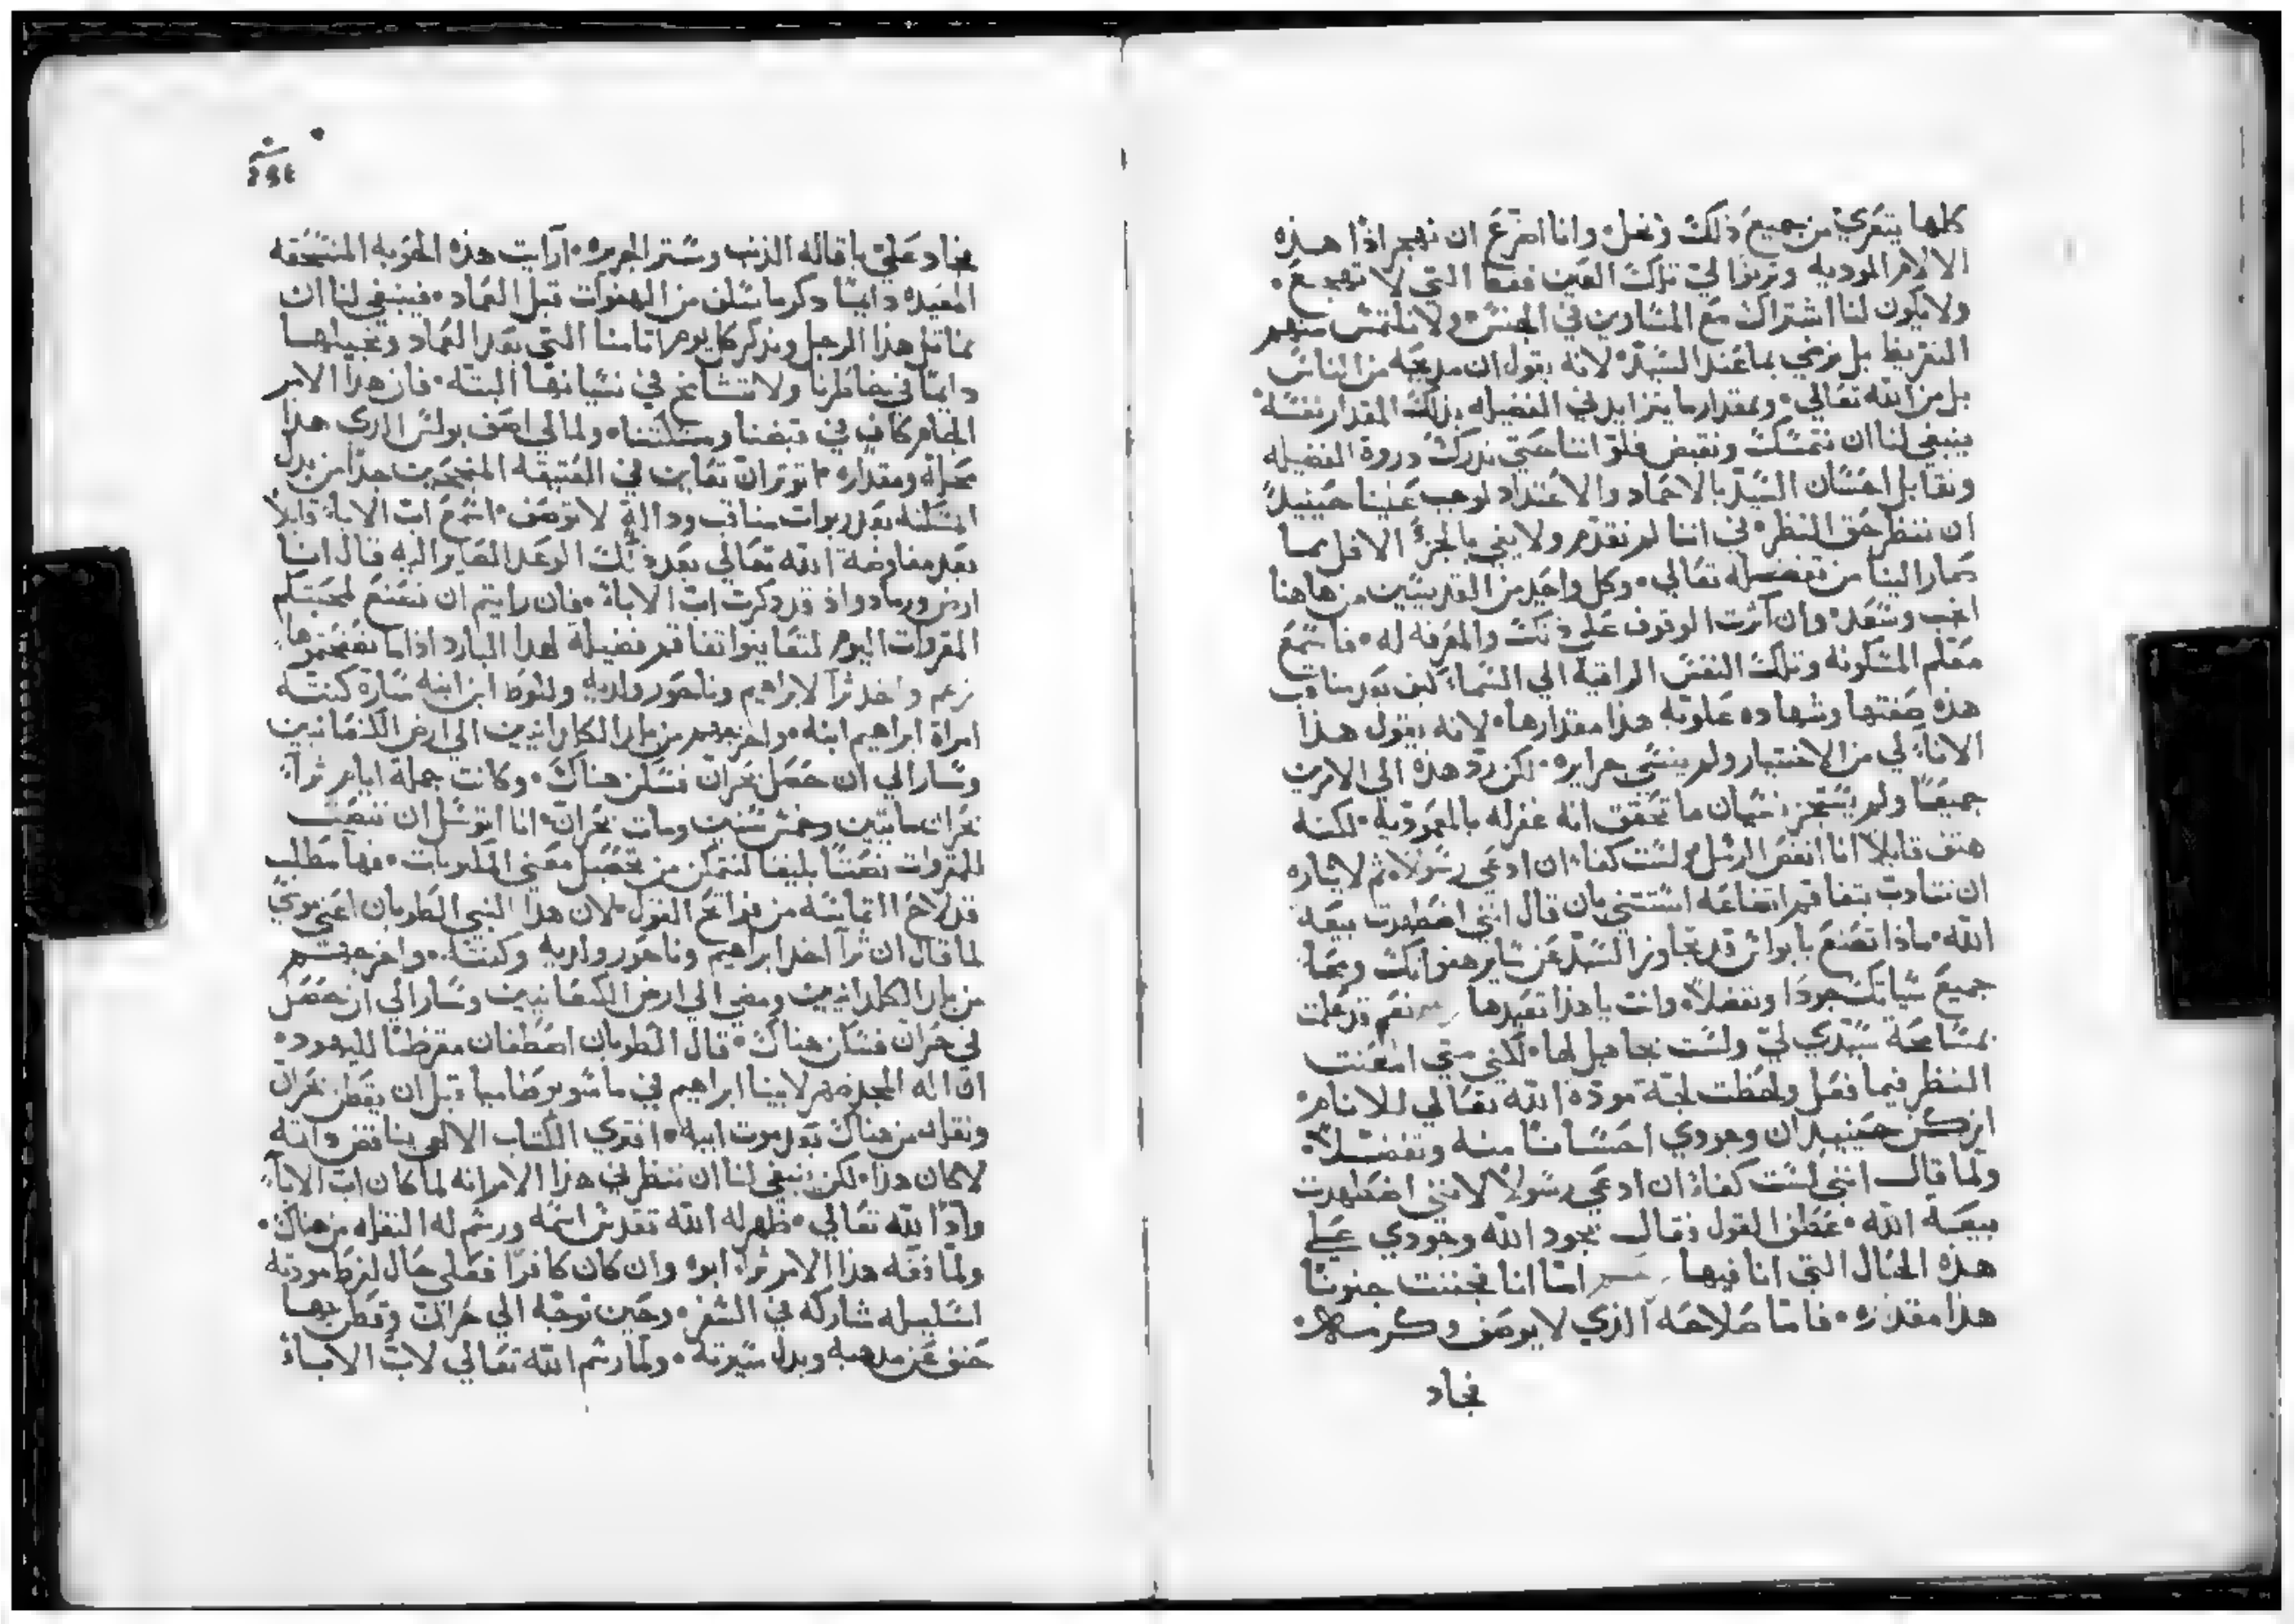 كلها يتعري من جميع ذلك ونحل وانا اضرع ان نهجر اذًا هذه
الالام الموديه ونرنوا الي تلك العين فقط التي لا تهجع
ولا يكون لنا اشتراك مع المساوين في الجنس ولا نلتمس منهم
التقريظ بل نرضي بما عند السيد لانه يقول ان مديحه من الناس
بل من الله تعالي وبمقدار ما يتزايد في الفضيله بذلك المقدار نفسه
ينبغي لنا ان نتمسك ونقبض فلو اننا حتي ندرك دروة الفضيله
ونقابل احسان السيد بالاحماد والاعتداد لوجب علينا حينيدٍ
ان ننظر حق النظر في اننا لم نقدم ولا يفي بالجزء الاقل مما
صار الينا من تفضله تعالي وكل واحد من القديسين من هاهنا
انجب وسعد وان اثرت الوقوف علي ذلك والمعرفه له فاسمع
معلم المسكونه وتلك النفس الراقية الي السماء كيف بعد مناقب
هذه صفتها وشهاده علويه هذا مقدارها لانه يقول هذا
الاناء لي من الاختيار ولم ينسي جرايره لكن رد هذه الي الامرين
جميعًا ولم نسيان ما تحقق انه غفر له بالمعموديه لكنه
هتف قايلا انا انقص الرسل ولست كفاء ان ادعي رسولا ثم لايثاره
ان نتادب بتفاقم اتضاعه استتني بان قال انني اضطهدت بيعة
الله ماذا تصنع يا بولس قد تجاوز السيد عن ساير هفواتك ومحا
جميع سياتك جودا وتفضلا وانت يا هذا تعيدها نعم قد علمت
بمسامحة سيدي لي ولست بجاهل لها لكني متي امعنت
النظر فيما فعل ولحظت لجة مودة الله تعالي للانام
اركن حينيدٍ ان وجودي احسانا منه وتفضلا
ولما قال انني لست كفاء ان ادعي رسولا لانني اضطهدت
بيعة الله عطف القول فقال بجود الله وجودي علي
هذه الحال التي انا فيها امّا انا فجننت جنونًا
هذا مقداره فامّا صلاحه الذي لا يوصف وكرمه
فجاد
فجاد علي باقاله الذنب وستر الجريره ارايت هذه الهويه المنسحقه
المعيده دايمًا دكر ما سلف من الهفوات قبل العماد فينبغي لنا ان
نماثل هذا الرجل ونذكر كل يوم اثامنا التي بعد العماد ونجيلها
دايمًا في خاطرنا ولا نتسامح في نسيانها البتة فان هذا الامر
لجام كافٍ في قبضنا ومسكنتنا ولما لي اصف بولس الذي هذا
محله ومقداره اتوثر ان تعاين في العتيقه المنجبين جدا من بدل
المسكنه بعد ربوات مناقب ودالةٍ لا توصف اسمع اب الاباء قايلًا
بعد مفاوضة الله تعالي بعد ذلك الوعد الصاير اليه قال انا
ارض ورماد واذ قد دكرت اب الاباء فان رايتم ان نضع لمحبتكم
المقروات اليوم لتعاينوا تفاقم فضيلة لهذا البارد اذا ما تفحصتموها
زعم واخد ثرا لابراهيم وناحور ولديه ولوط ابن ابنه سارة كنته
امراة ابراهيم ابنه واخرجهم من بلد الكلدانيين الي ارض الكنعانيين
وسار الي ان حصل بحران فسكن هناك وكانت جملة ايام ثرا
بحران مايتين وخمس سنين ومات بحران انا اتوسل ان ننصت
للمقروات نصتًا بليغا لنتمكن من تحصيل معني المكتوبات فها مطلب
قد لاح التماسه من فواتح القول لان هذا النبي الطوبان اعني موسي
لما قال ان ثرا اخد ابراهيم وناحور ولديه وكنته واخرجهم
من بلد الكلدانيين ومضي الي ارض الكنعانيين وسار الي ان حصل
في حران فسكن هناك قال الطوبان اصطفان مقرظًا لليهود
ان اله المجد ظهر لابينا ابراهيم في ما سوبوطاميا قبل ان يقطن بحران
ونقله من هناك بعد موت ابيه افتري الكتاب الالهي يناقض داته
لا كان هذا لكن ينبغي لنا ان ننظر في هذا الامر انه لما كان اب الاباء
وادًا لله تعالي ظهر له الله تقدس اسمه ورسم له النقله من هناك
ولما فقه هذا الامر ثرا ابوه وان كان كافرًا فعلي حال لفرط مودته
لسليله شاركه في السفر وحين توجه الي حران وقطن بها
حنف عن مدهبه وبدل سيرته ولما رسم الله تعالي لاب الاباء